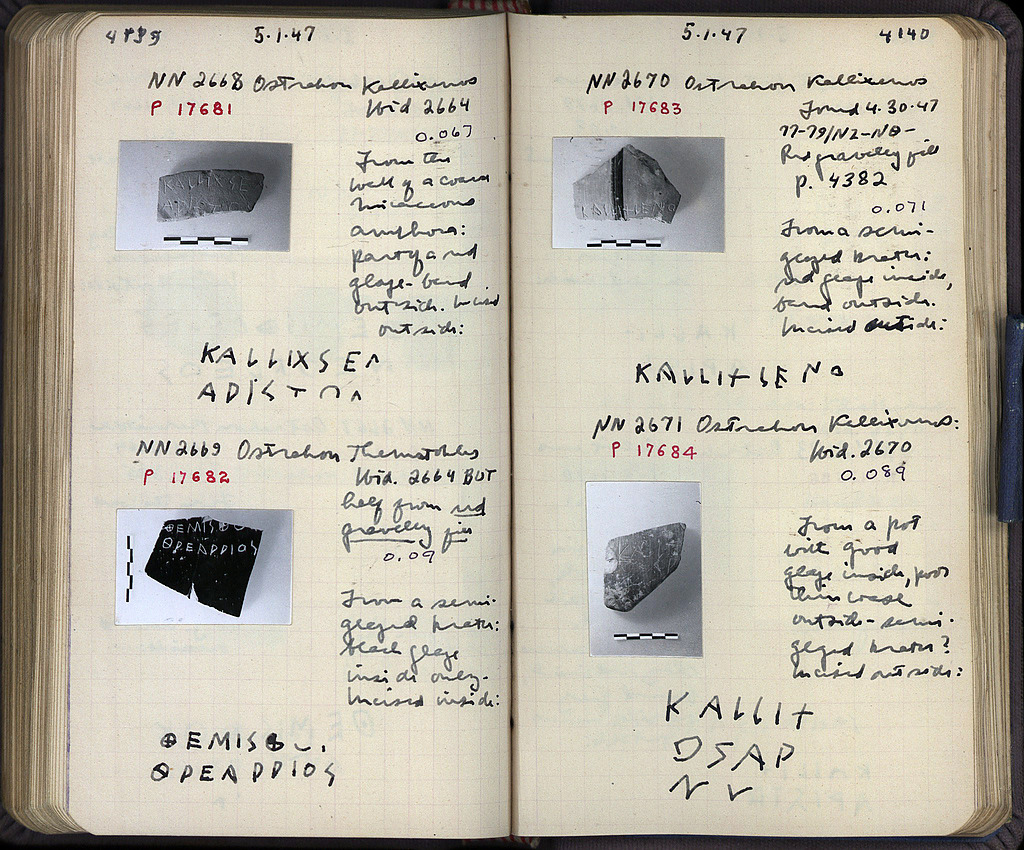 5.1.47
NN 2668 Ostrakon Kallixenos
P 17681
Ibid 2664
0.067
From the
wall of a coarse
micaceous
amphora:
part of a red
glaze-band
outside. Incised
outside:
KALLIXSEN
ADISTON
NN 2669 Ostrakon Themistokles
P 17682
Ibid. 2664 BUT
half from red
gravelley fill
0.09
From a semi-
glazed krater:
black glaze
inside only.
Incised inside:
ΘEMISΘ
ΘPEAPPIOS
5.1.47
4140
NN 2670 Ostrakon Kallixenos
P 17683
Found 4.30.47
77-79/ΝΖ-ΝΘ-
Red gravelley fill
p. 4382
0.071
From a semi-
glazed krater:
red glaze inside,
band outside.
Incised outside:
KALLI+SENO
NN 2671 Ostrakon Kallixenos:
P 17684
Ibid. 2670
0.089
From a pot
with good
glaze inside, poor
thin wash
outside - semi-
glazed krater?
Incised outside:
KALLI+
OSAP
NV